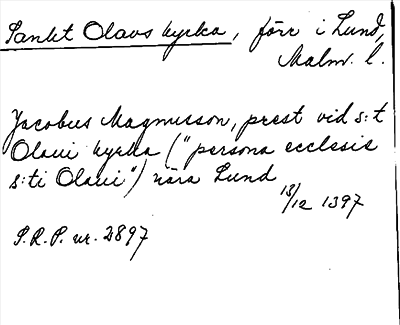 Sankt Olavs kyrka, förr i Lund,
Malm. l.
Jacobus Magnusson, prest vid s:t
Olaui kyrka ("persona ecclesis
s:ti Olaui") nära Lund
13/12 1397
S.R.P. nr. 2897